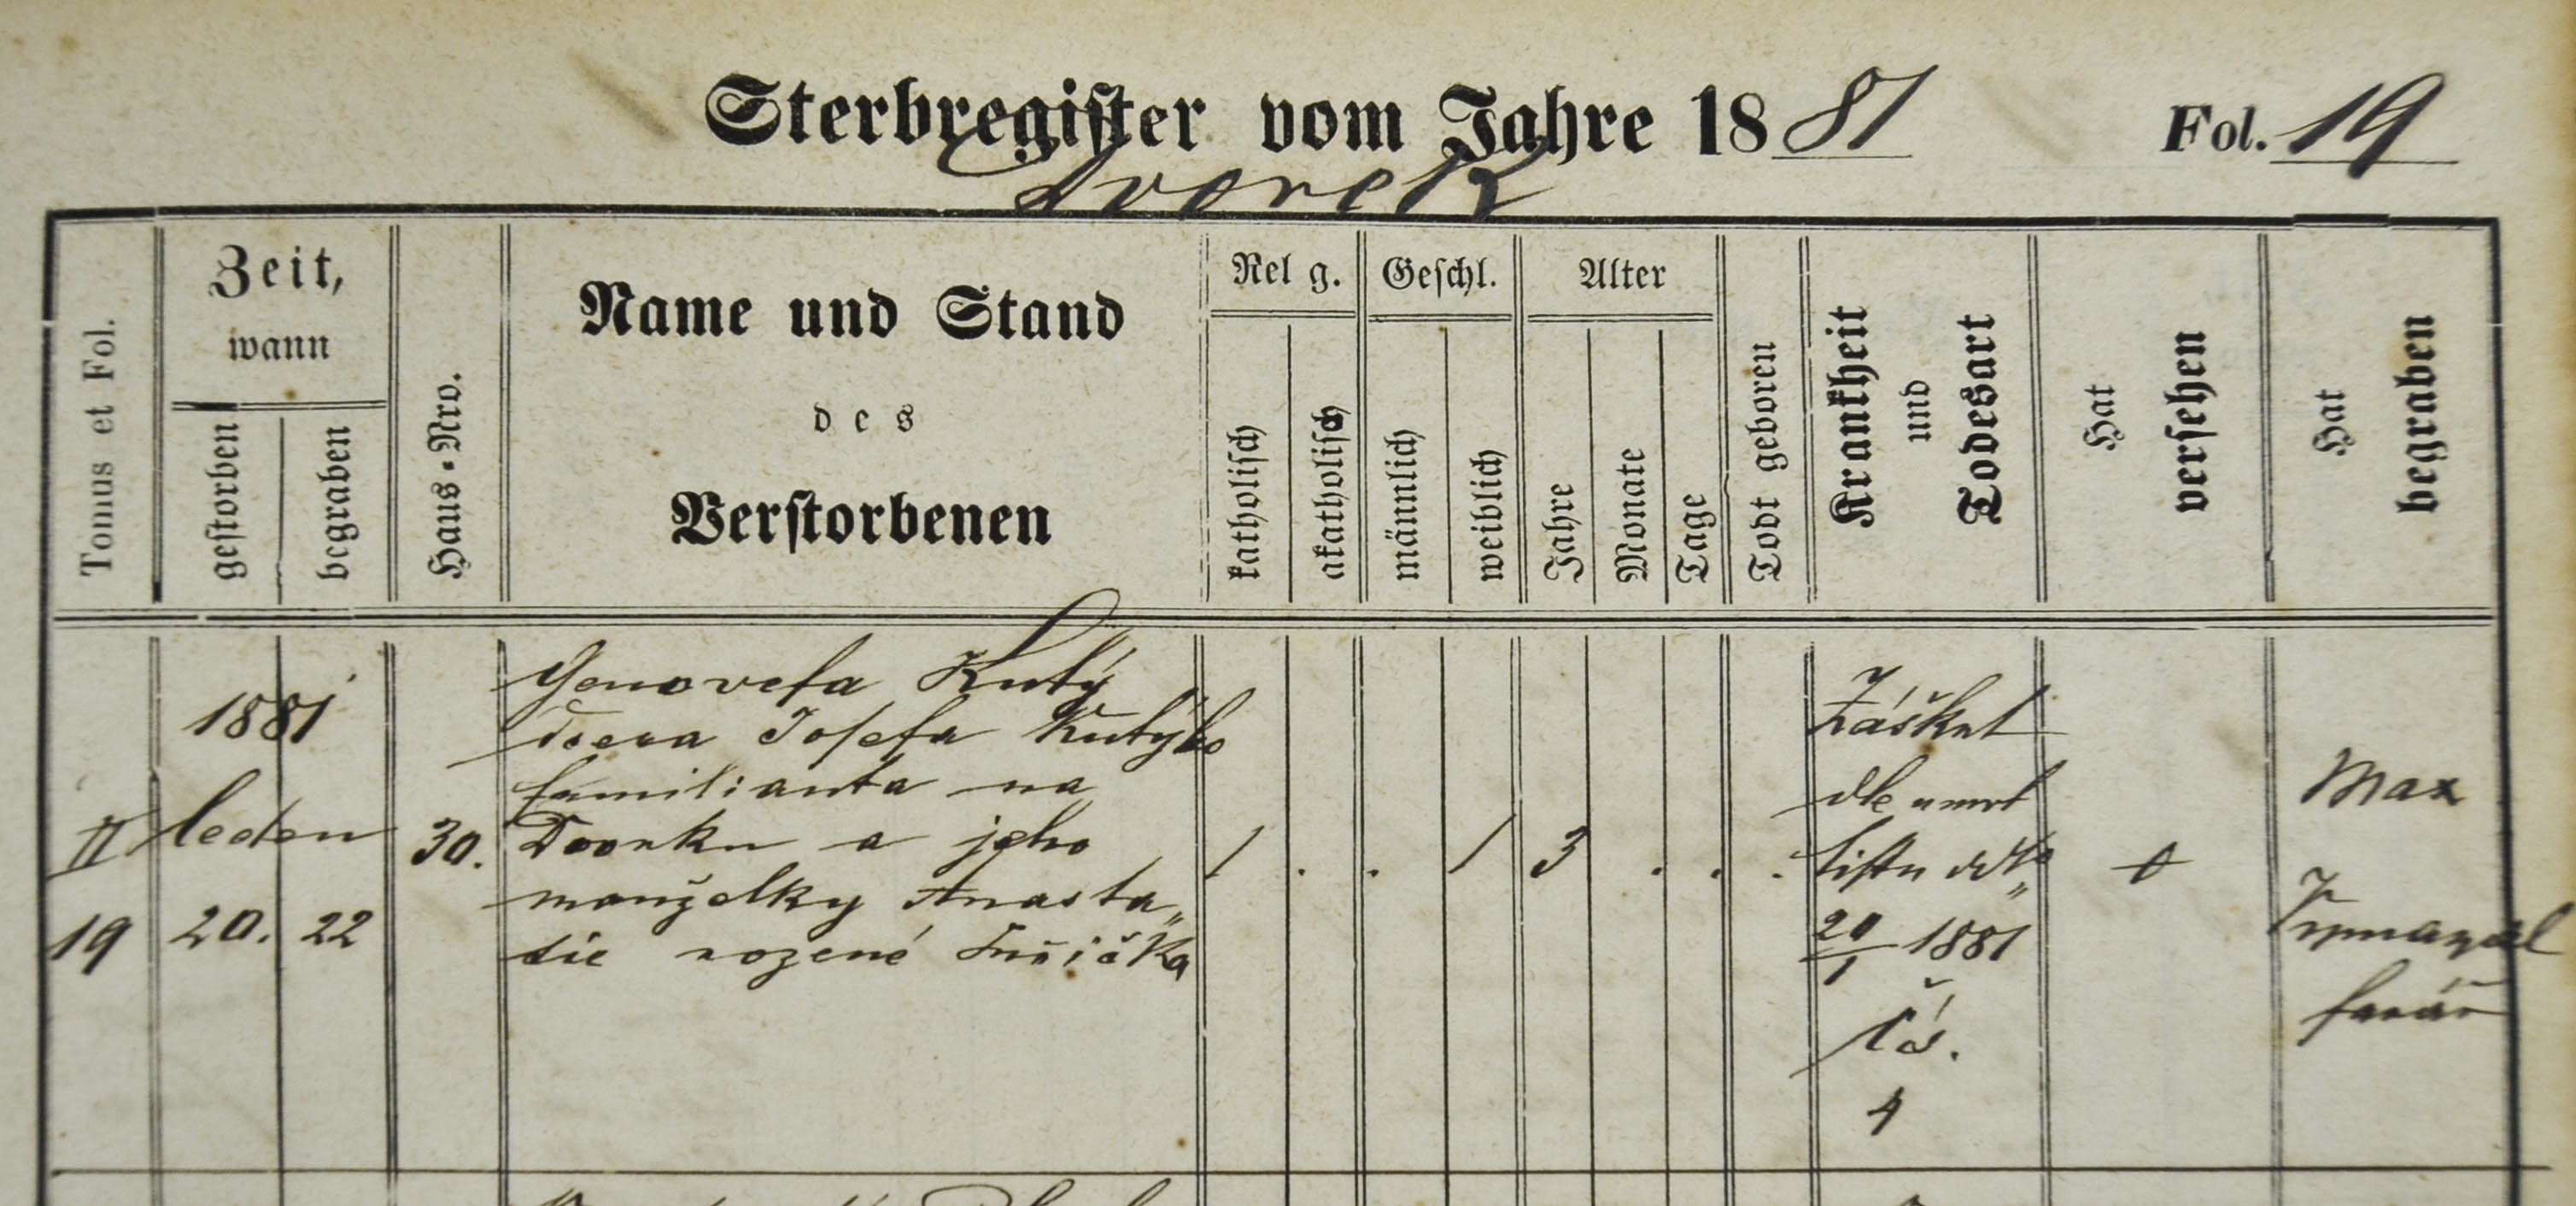 Sterbregister vom Jahre 1881
Fol. 19
Dvorek
Tomus et Fol.
Zeit,
wann
gestorben
begraben
Haus-Nro.
Name und Stand
des
Verstorbenen
Rel g.
katholisch
akatholisch
Geschl.
männlich
weiblich
Alter
Jahre
Monate
Tage
Todt geboren
Krankheit
und
Todesart
Hat
versehen
Hat
begraben
II
19
1881
leden
20. 22
30.
Genovefa Kutý
dcera Josefa Kutýho
familianta na
Dvorku a jeho
manželky Anasta„
sie rozené
1 . . 1 3 . . .
Záškrt
dle úmrt
listu ddto
20/1 1881
Čís.
4
Max
farář